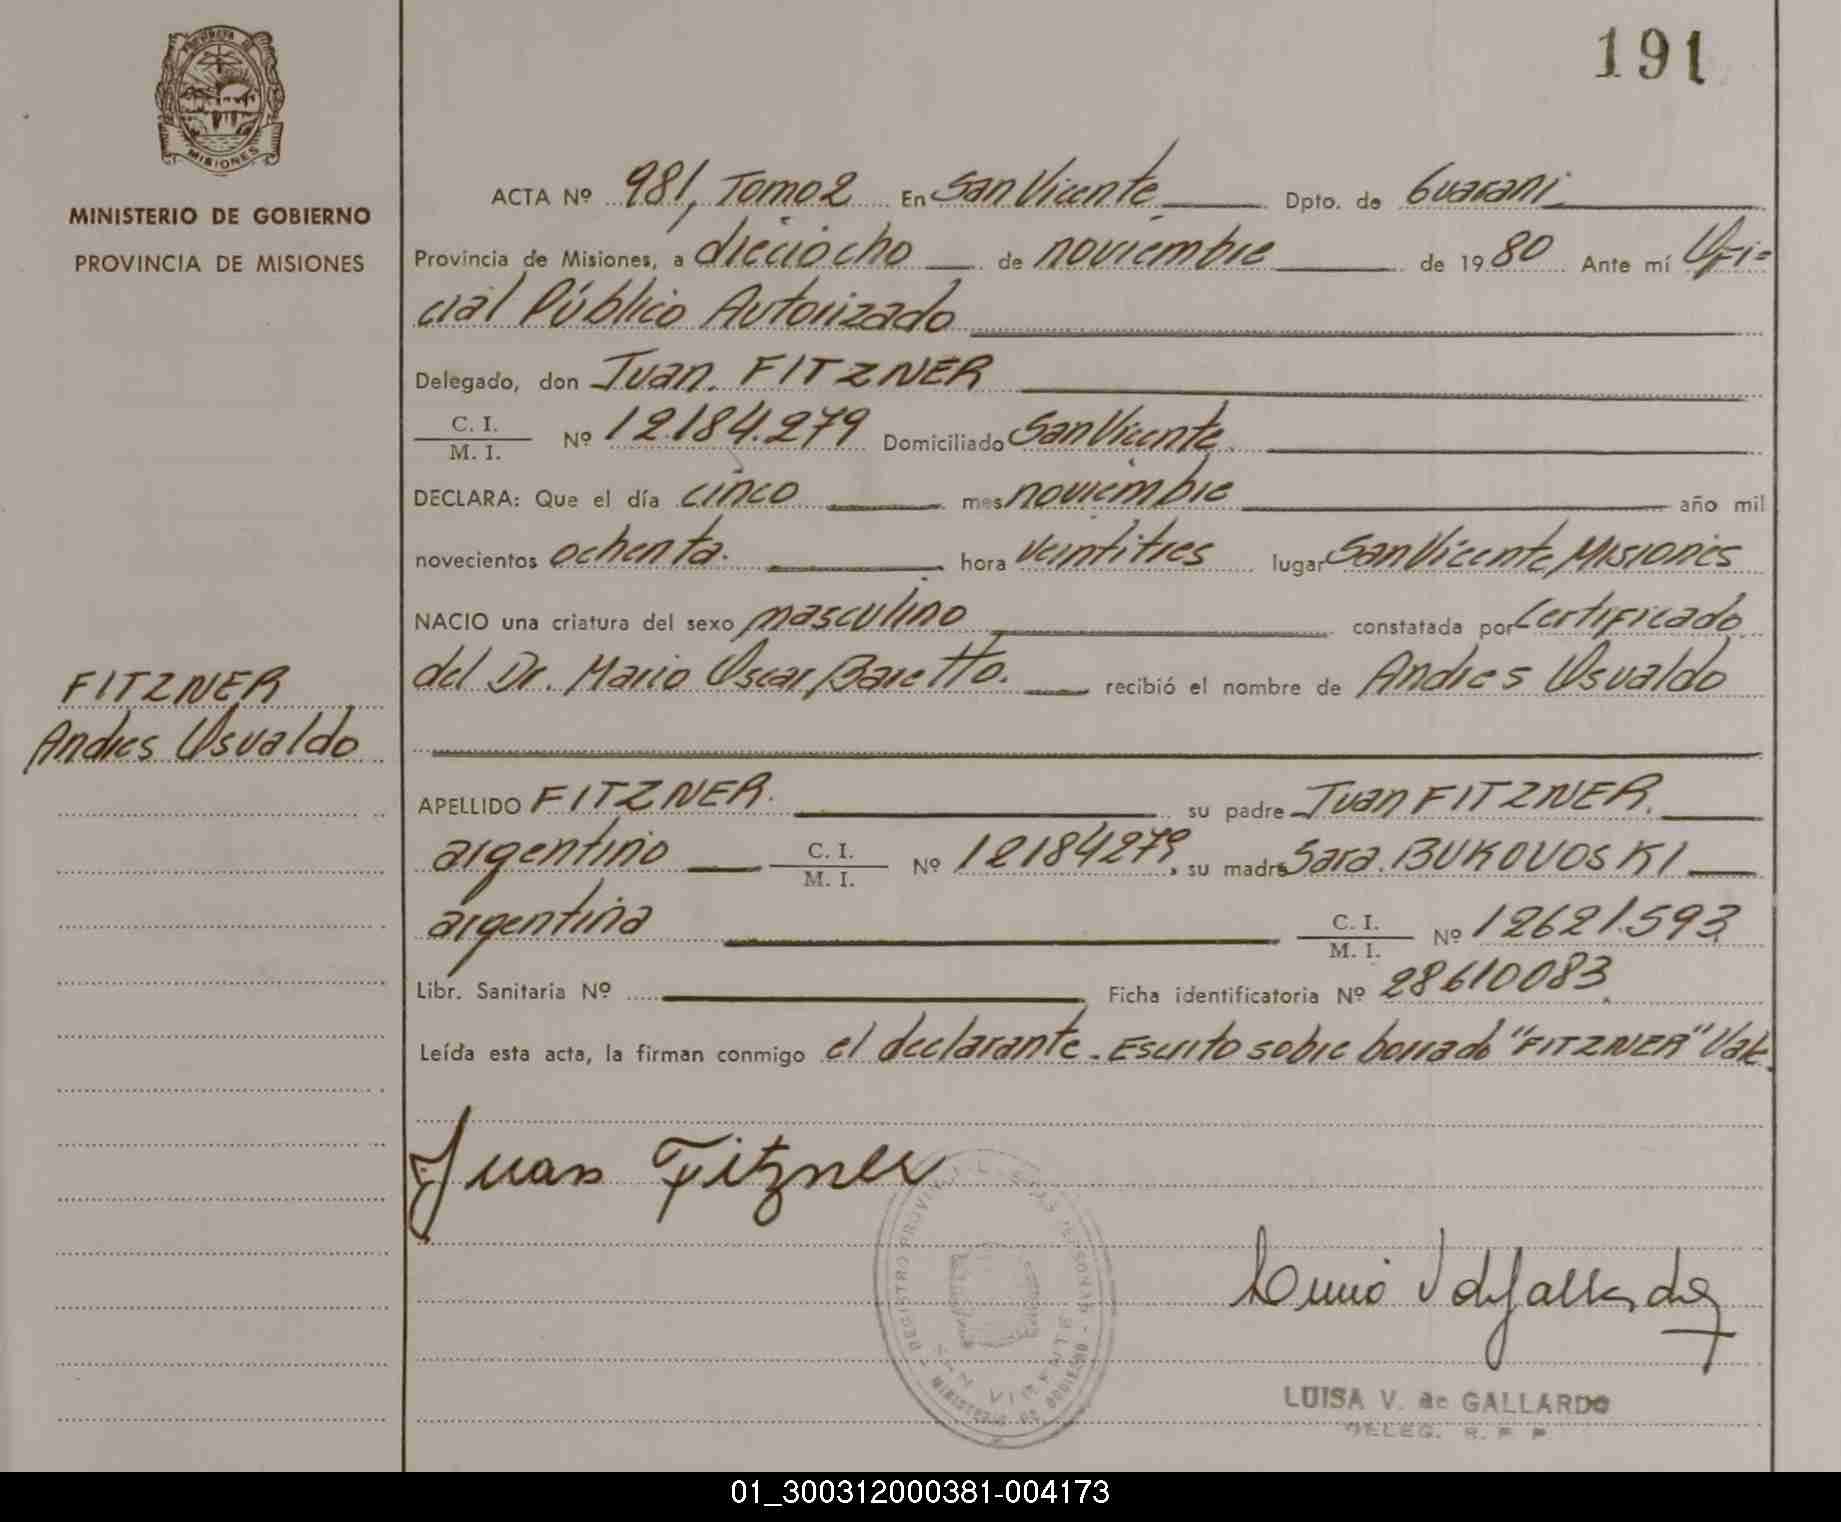 191
PROVINCIA DE
MISIONES
MINISTERIO DE GOBIERNO
PROVINCIA DE MISIONES
FITZNER
Andres Osvaldo
ACTA Nº 981, Tomo 2 En San Vicente Dpto. de Guarani
Provincia de Misiones, a dieciocho de noviembre de 1980 Ante mí Ofi=
cial Público Autorizado
Delegado, don Juan FITZNER
C. I.
M. I. Nº 12.184.279 Domiciliado San Vicente
DECLARA: Que el día cinco mes noviembre año mil
novecientos ochenta. hora veintitres lugar San Vicente, Misiones
NACIO una criatura del sexo masculino constatada por Certificado
del Dr. Mario Oscar Baretto. recibió el nombre de Andres Osvaldo
APELLIDO FITZNER. su padre Juan FITZNER.
argentino C. I.
M. I. Nº 12184279, su madre Sara BUKOVOSKI
argentina C. I.
M. I. Nº 12621.593
Libr. Sanitaria Nº Ficha identificatoria Nº 28610083.
Leída esta acta, la firman conmigo el declarante. Escrito sobre borrado "FITZNER" Vale.
Juan Fitzner
REGISTRO PROVINCIAL DE LAS PERSONAS
SAN VICENTE
MINISTERIO DE GOBIERNO
LUISA V. de GALLARDO
DELEG. R. P. P.
01_300312000381-004173